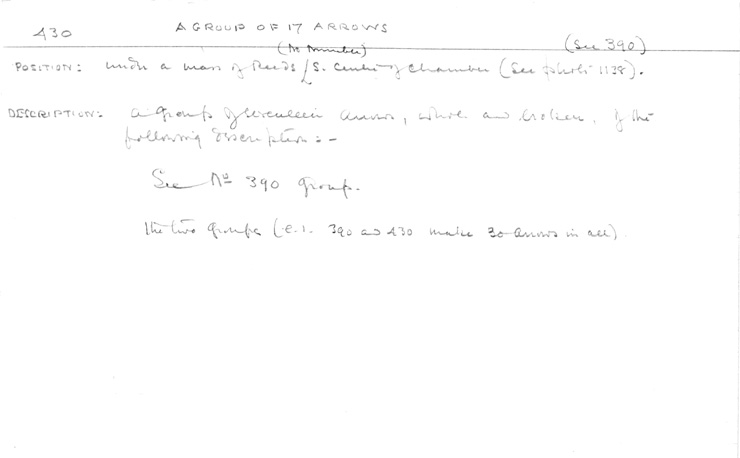 430 A GROUP OF 17 ARROWS
(No Number) (See 390)
POSITION: under a mass of Reeds / S. Center of Chamber (See photo 1138).
DESCRIPTION: A group of seventeen arrows, whole and broken, of the
following description:-
See No 390 group.
The two groups (i.e. 390 and 430 make 30 arrows in all).